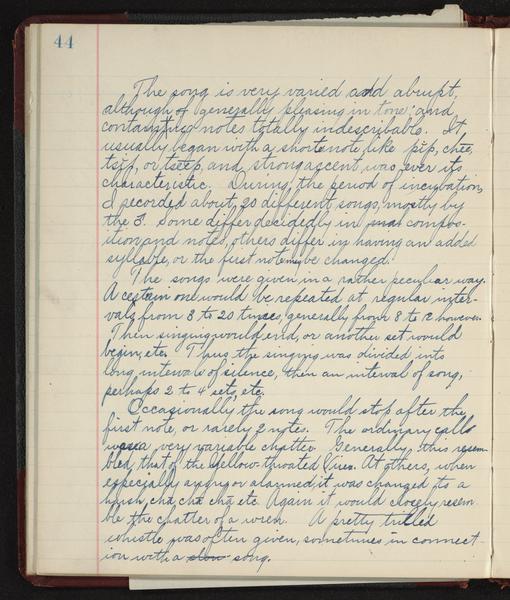 44
The song is very varied and abrupt,
although of generally pleasing in tone; and
containing notes totally indescribable. It
usually began with a short note like pĭp, chee,
tsĭf, or tseep, and strong ascent was ever its
characteristic. During the period of incubation,
I recorded about 20 different songs, mostly by
the ♂. Some differ decidedly in compos-
ition and notes, others differ in having an added
syllable, or the first note may be changed.
The songs were given in a rather peculiar way.
A certain one would be repeated at regular inter-
vals, from 3 to 20 times, generally from 8 to 12 however.
Then singing would end, or another set would
begin, etc. Thus the singing was divided into
long intervals of silence, then an interval of song,
perhaps 2 to 4 sets, etc.
Occasionally the song would stop after the
first note, or rarely 2 notes. The ordinary calls
was a very variable chatter. Generally this resem-
bled that of the Yellow-throated Vireo. At others, when
especially angry or alarmed, it was changed to a
harsh, cha cha cha etc. Again it would closely resem-
ble the chatter of a wren. A pretty trilled
whistle was often given, sometimes in connect-
ion with a slow song.